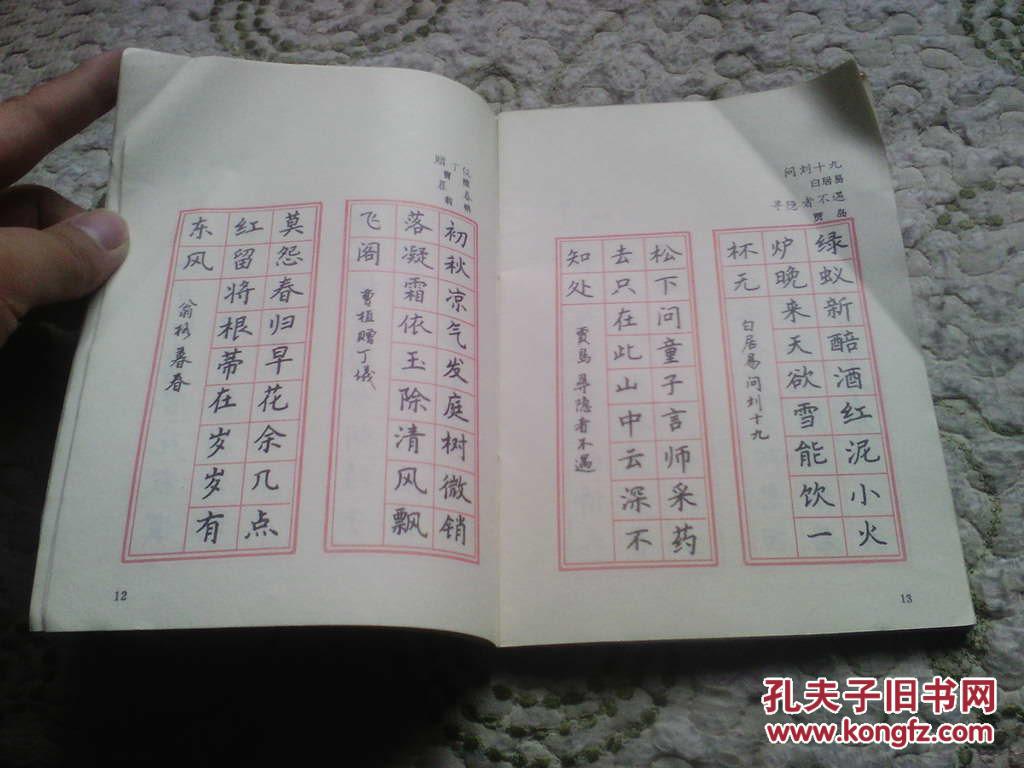 初秋凉气发庭树微销
落凝霜依玉除清风飘
飞阁
曹植赠丁儀
莫怨春归早花余几点
红留将根蒂在岁岁有
东风
翁格 暮春
12
问刘十九
白居易
寻隐者不遇
贾岛
绿蚁新醅酒红泥小火
炉晚来天欲雪能饮一
杯无
白居易问刘十九
松下问童子言师采药
去只在此山中云深不
知处
贾岛 寻隐者不遇
13
孔夫子旧书网
www.kongfz.com